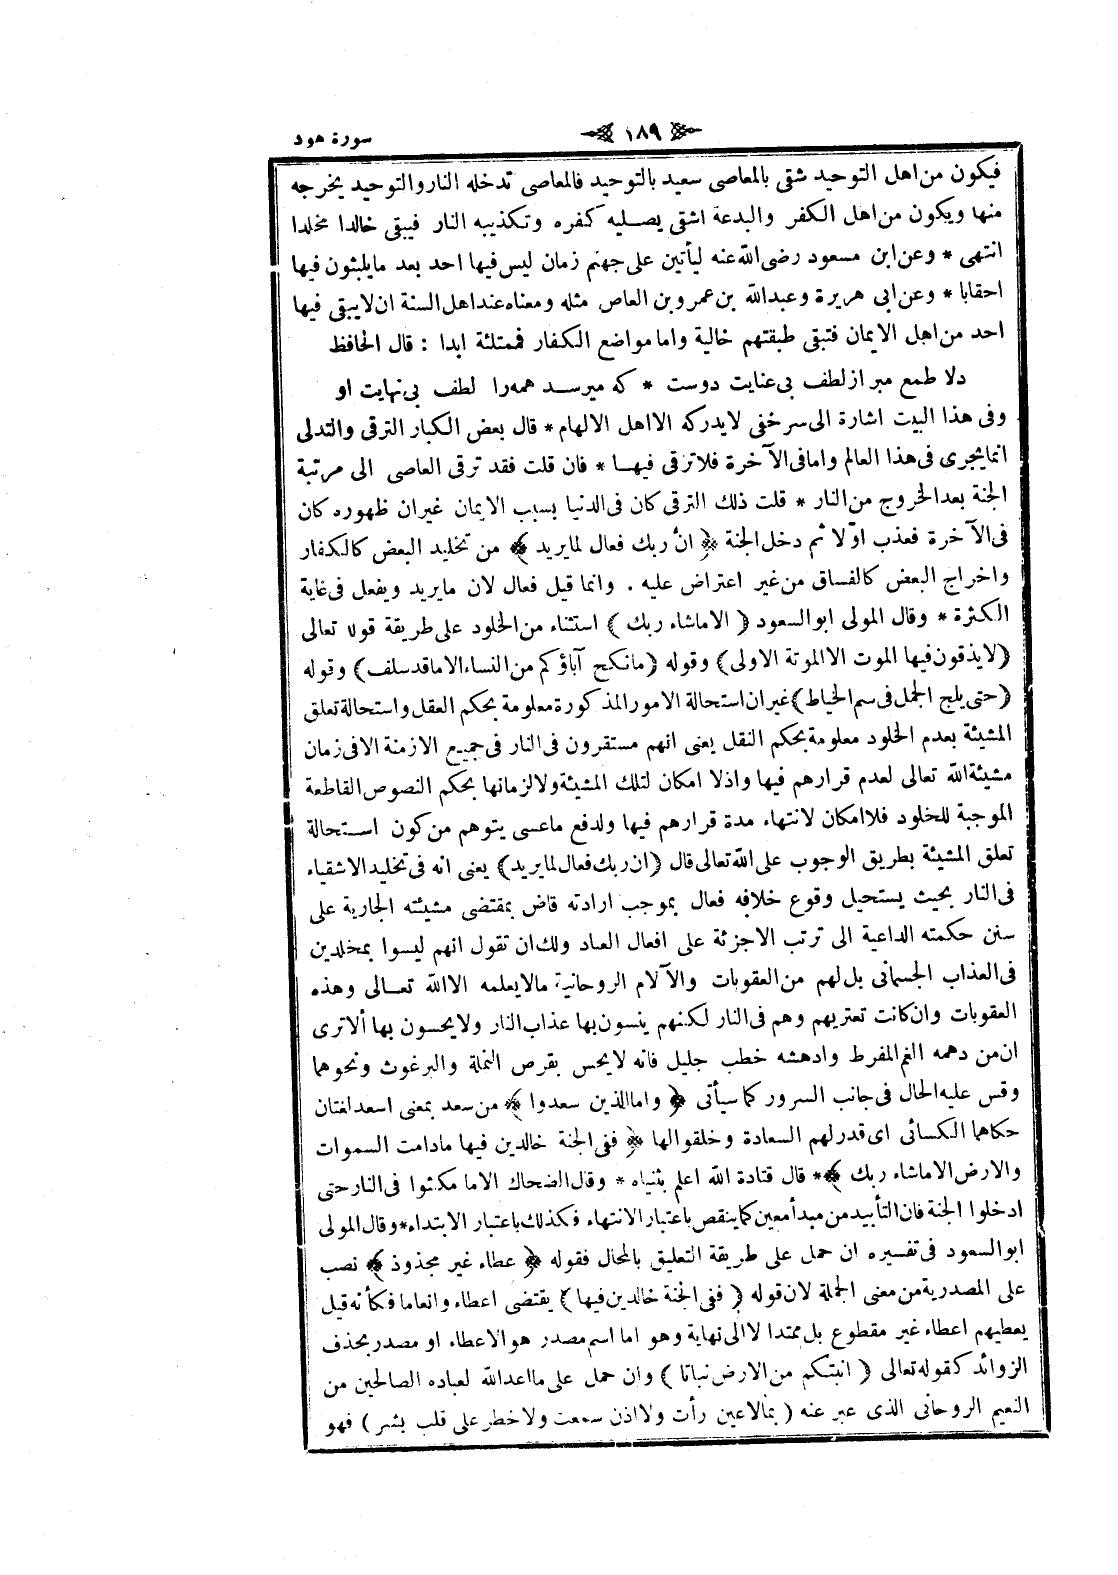 سورة هود
﴿ ١٨٩ ﴾
فيكون من اهل التوحيد شقى بالمعاصى سعيد بالتوحيد فالمعاصى تدخله النار والتوحيد يخرجه
منها ويكون من اهل الكفر والبدعة اشقى يصليه كفره وتكذيبه النار فيبقى خالدا مخلدا
انتهى * وعن ابن مسعود رضى الله عنه ليأتين على جهنم زمان ليس فيها احد بعد ما يلبثون فيها
احقابا * وعن ابى هريرة وعبد الله بن عمرو بن العاص مثله ومعناه عند اهل السنة ان لا يبقى فيها
احد من اهل الايمان فتبقى طبقتهم خالية واما مواضع الكفار فممتلئة ابدا : قال الحافظ
دلا طمع مبر از لطف بى عنايت دوست * كه ميرسد همه را لطف بى نهايت او
وفى هذا البيت اشارة الى سر خفى لا يدركه الا اهل الالهام * قال بعض الكبار الترقى والتدلى
انما يجرى فى هذا العالم واما فى الآخرة فلا ترقى فيها * فان قلت فقد ترقى العاصى الى مرتبة
الجنة بعد الخروج من النار * قلت ذلك الترقى كان فى الدنيا بسبب الايمان غير ان ظهوره كان
فى الآخرة فعذب اوّلا ثم دخل الجنة ﴿ انّ ربك فعال لما يريد ﴾ من تخليد البعض كالكفار
واخراج البعض كالفساق من غير اعتراض عليه . وانما قيل فعال لان ما يريد ويفعل فى غاية
الكثرة * وقال المولى ابو السعود ( الا ما شاء ربك ) استثناء من الخلود على طريقة قوله تعالى
( لا يذقون فيها الموت الا الموتة الاولى ) وقوله ( ما نكح آباؤكم من النساء الا ما قد سلف ) وقوله
( حتى يلج الجمل فى سم الخياط ) غير ان استحالة الامور المذكورة معلومة بحكم العقل واستحالة تعلق
المشيئة بعدم الخلود معلومة بحكم النقل يعنى انهم مستقرون فى النار فى جميع الازمنة الا فى زمان
مشيئة الله تعالى لعدم قرارهم فيها واذ لا امكان لتلك المشيئة ولا لزمانها بحكم النصوص القاطعة
الموجبة للخلود فلا امكان لانتهاء مدة قرارهم فيها ولدفع ما عسى يتوهم من كون استحالة
تعلق المشيئة بطريق الوجوب على الله تعالى قال ( ان ربك فعال لما يريد ) يعنى انه فى تخليد الاشقياء
فى النار بحيث يستحيل وقوع خلافه فعال بموجب ارادته قاض بمقتضى مشيئته الجارية على
سنن حكمته الداعية الى ترتب الاجزئة على افعال العباد ولك ان تقول انهم ليسوا بمخلدين
فى العذاب الجسمانى بل لهم من العقوبات والآلام الروحانية مالا يعلمه الا الله تعالى وهذه
العقوبات وان كانت تعتريهم وهم فى النار لكنهم ينسون بها عذاب النار ولا يحسون بها ألا ترى
ان من دهمه الغم المفرط وادهشه خطب جليل فانه لا يحس بقرص النملة والبرغوث ونحوهما
وقس عليه الحال فى جانب السرور كما سيأتى ﴿ واما الذين سعدوا ﴾ من سعد بمعنى اسعد لغتان
حكاهما الكسائى اى قدر لهم السعادة وخلقوا لها ﴿ ففى الجنة خالدين فيها مادامت السموات
والارض الا ما شاء ربك ﴾ * قال قتادة الله اعلم بثنياه * وقال الضحاك الا ما مكثوا فى النار حتى
ادخلوا الجنة فان التأبيد من مبدأ معين كما ينقص باعتبار الانتهاء فكذلك باعتبار الابتداء * وقال المولى
ابو السعود فى تفسيره ان حمل على طريقة التعليق بالمحال فقوله ﴿ عطاء غير مجذوذ ﴾ نصب
على المصدرية من معنى الجملة لان قوله ( ففى الجنة خالدين فيها ) يقتضى اعطاء وانعاما فكأنه قيل
يعطيهم اعطاء غير مقطوع بل ممتدا لا الى نهاية وهو اما اسم مصدر هو الاعطاء او مصدر بحذف
الزوائد كقوله تعالى ( انبتكم من الارض نباتا ) وان حمل على ما اعد الله لعباده الصالحين من
النعيم الروحانى الذى عبر عنه ( بما لا عين رأت ولا اذن سمعت ولا خطر على قلب بشر ) فهو